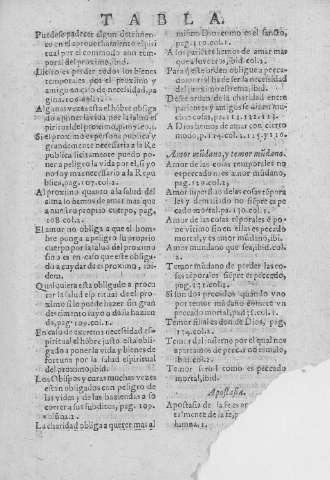 TABLA.
Puedese padecer algun detrimento
en el aprouechamiento espiri
tual por el commodo aun tem
poral del proximo, ibid.
Licito es perder todos los bienes
temporales por el proximo y
amigo en caso de necessidad, pa
gina 106.col.1.
Algunas vezes esta el hõbre obliga
do a poner la vida por la salud es
piritual del proximo, pag.
Si el proximo es persona publica y
grandemente necessaria a la Re
publica licitamente puedo po
ner a peligro la vida por el, si yo
no soy mas necessario a la Repu
blica, pag.107.col.1.
Al proximo quanto a la salud del
alma lo hemos de amar mas que
a nuestro proprio cuerpo, pag.
108.col.1.
El amor no obliga a que el hom
bre ponga a peligro su proprio
cuerpo por la salud del proximo
sino es en caso que este obliga-
do a cuydar de es proximo, ibi-
dem.
Qualquiera esta obligado a procu
rar la salud espiritual del proximo
si lo puede hazer sin gran
dimento suyo o da la hazien
da, pag.109.col.1.
En caso de extrema necessidad es-
piritual el hõbre justo esta obliga
do a poner la vida y bienes de
fortuna por la salud espiritual
del proximo, ibid.
Los Obispos y curas muchas vezes
estan obligados con peligro de
las vidas y de las haziendas a so
correr a sus subditos, pag. 109.
coluna.2.
La charidad obliga a querer mas al
mismo Dios como es el sancto,
pag.110.col.1.
A los parientes hemos de amar mas
que a los otros, ibid.col.2.
Para si este orden obligue a perca-
do por el bien del proximo en
necessidad estrema, ibid.
Deste orden de la charidad entre
parientes y amigos se assueluen mu
chas cosas, pa.111.112.113.
A Dios hemos de amar con cierto
modo, p.114.col.1.115.y 116.
Amor mũdano, y temor mũdano.
Amor de las cosas temporales no
es peccado: no es amor mũdano,
pag.130.col.2.
Amor superfluo de las cosas tẽpora
les y demasiado no siẽpre es pe
cado mortal, pa.130.col.2.
Amor de las cosas tẽporales si po-
ne vltimo fin en ellas es peccado
mortal, y es amor mũdano, ibi.
Amor mundano que sea, ibid.col.
2.
Temor mũdano de perder las co-
sas tẽporales siẽpre es peccado,
pag.131.col.2.
Si son dos peccados quando vno
por temor mũdano comete vn
peccado mortal, pa.131.col.2.
Temor filial es don de Dios, pag.
134.col.2.
Temor del infierno por el qual nos
apartamos de peccar no es malo,
ibid.col.2.
Temor seruil como es peccado
mortal, ibid.
Apostasia.
Apostasia de la fe es ap
talmente de la fe, p
lumna 1.